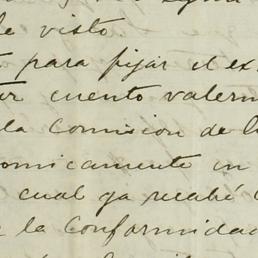 de visto
para fijar el ex
cuento valerm
la Comision de l
omicamente un
cual ya recabé
la Conformidad